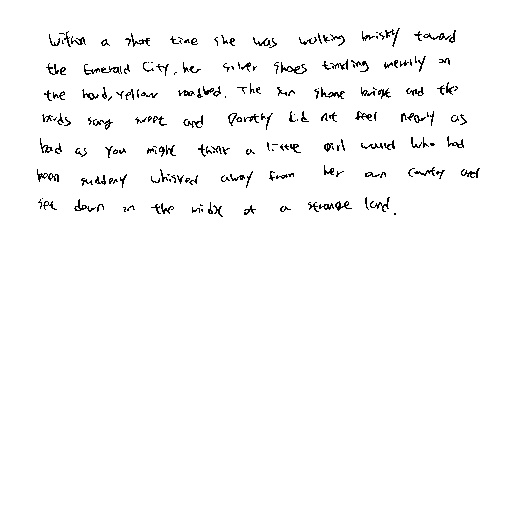 Within a short time she was walking briskly toward
the Emerald City, her silver shoes tinkling merrily on
the hard, yellow roadbed. The sun shone bright and the
birds sang sweet and Dorothy did not feel nearly as
bad as you might think a little girl would who had
been suddenly whisked away from her own country and
set down in the midst of a strange land.